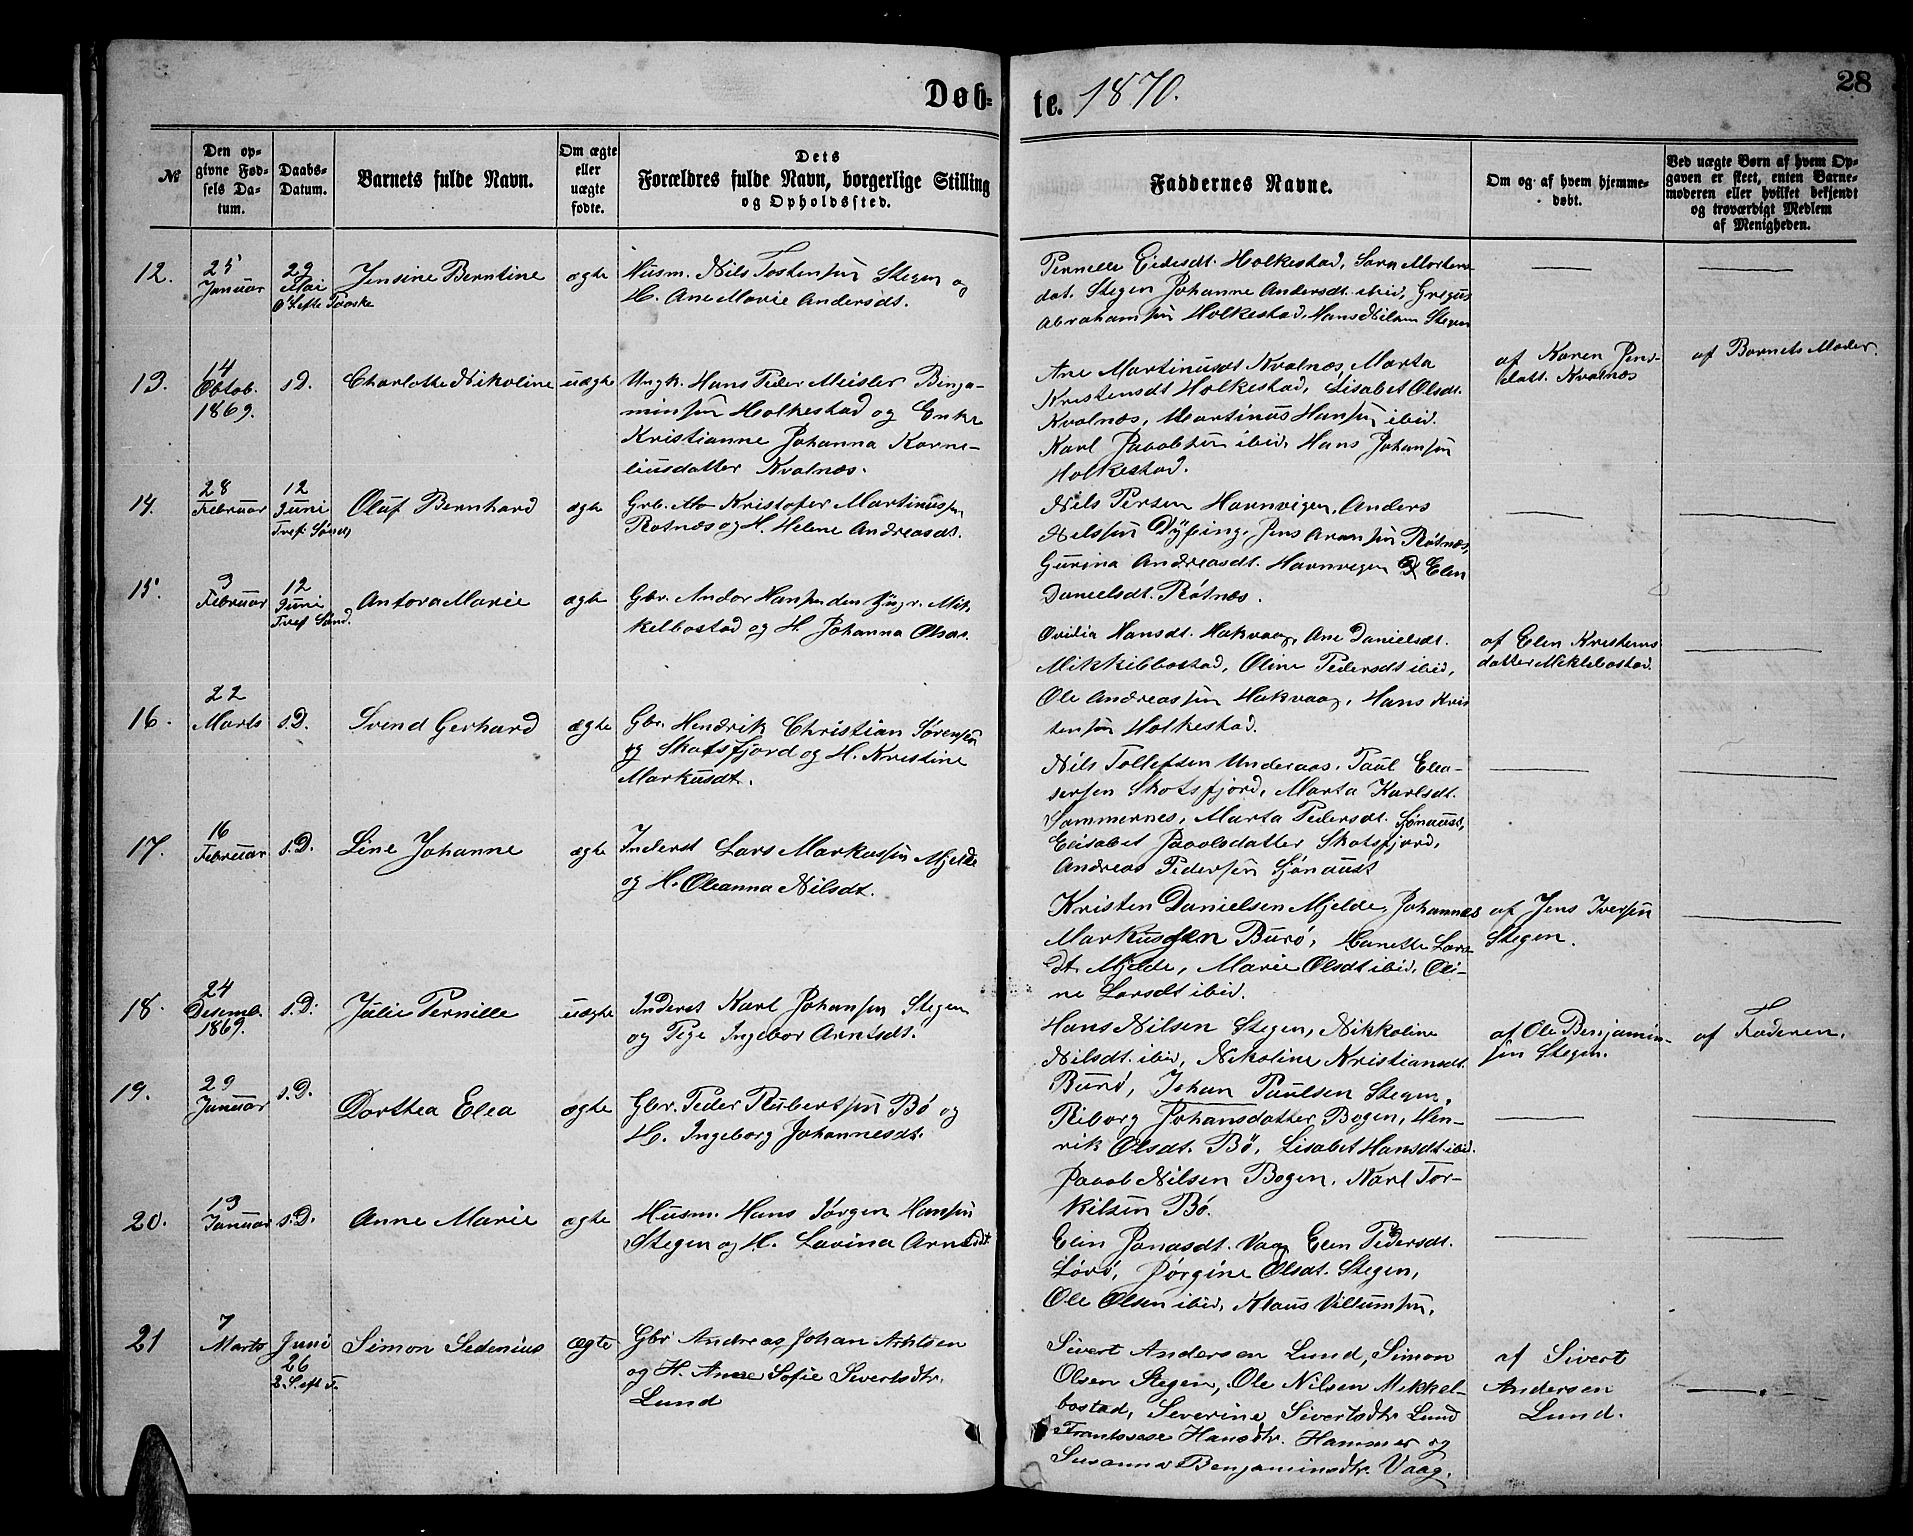 Døb=
te. 1870.
28
№
Den op-
givne Fød-
sels Da-
tum.
Daabs-
Datum.
Barnets fulde Navn.
Om ægte
eller
uægte
fødte.
Dets
Forældres fulde Navn, borgerlige Stilling
og Opholdssted.
Faddernes Navne.
Om og af hvem hjemme-
døbt.
Ved uægte Børn af hvem Op-
gaven er skeet, enten Barne-
moderen eller hvilket bekjendt
og troværdigt Medlem
af Menigheden.
12.
25
Januar
29
Mai
6 S. efte Paaske
Jensine Berntine
ægte
Husm. Nils Tostensen Stegen og
H. Ane Marie Andersdt.
Pernelle Eidesdt. Holkestad, Sara Mortens
dat. Stegen Johanne Andersdt. ibid, Gregus
Abrahamsen Holkestad, Hans Nilsen Stegen
13.
14
Oktob.
1869.
s.D.
Charlotte Nikoline
uægte
Ungk. Hans Peder Meisler Binja-
minsen Holkestad og Enke
Kristianne Johanna Korne-
liusdatter Kvalnæs.
Ane Martinusdt Kvalnæs, Marta
Kristensdt Holkestad, Lisabet Olsdt.
Kvalnæs, Martinus Hansen ibid.
Karl Jacobsen ibid, Hans Johansen
Holkestad.
af Karen Jens-
datt. Kvalnæs
af Barnets Moder.
14.
28
Februar
12
Juni
Tref. Sønd.
Oluf Bernhard
ægte
Grb. Kristofer Martinussen
Røtnæs og H. Helene Andreasdt.
Nils Persen Havnvigen, Anders
Nilssen Dyping, Jens Aronsen Røtnæs,
Gurina Andreasdt. Havnvegen Elen
Danielsdt. Røtnæs.
15.
3
Februar
12
Juni
Tref. Sønd.
Antora Marie
ægte
Gbr. Andor Hansen den Yngr. Mik
kelbostad og H. Johanna Olsdt.
Ovilia Hansdt. Hakvaag, Ane Danielsdt.
Mikkelbostad, Oline Pedersdt ibid,
Ole Andreassen Hakvaag, Hans Kris
tensen Holkestad.
af Elen Kristens
datter Miklebostad.
16.
22
Marts
s.D.
Svend Gerhard
ægte
Gbr. Hendrik Christian Sørensen
Skotsfjord og H. Kristine
Markusdt.
Nils Tollefsen Underaas, Paul Elea-
sersen Skotsfjord, Marta Karlsdt.
Sommernes, Marta Pedersdt. Sjønaust,
Elisabet Paavlsdatter Skotsfjord,
Andreas Pedersen Sjønaust
17.
16
Februar
s.D.
Line Johanne
ægte
Inderst Lars Markussen Mjelde
og H. Oleanna Nilsdt.
Kristen Danielsen Mjelde, Johannes
Markussen Burø, Hanette Lars
dt. Mjelde, Marie Olsdt ibid, Oli-
ne Larsdt ibid.
af Jens Iversen
Stegen.
18.
24
Desemb.
1869.
s.D.
Julie Pernille
uægte
Inderst Karl Johansen Stegen
og Pige Ingebor Arntsdt.
Hans Nilsen Stegen, Nikkoline
Nilsdt. ibid, Nekoline Kristiansdt
Burø, Johan Paulsen Stegen.
af Ole Benjamin-
sen Stegen.
af Faderen.
19.
29
Januar
s.D.
Dorthea Elea
ægte
Gbr. Peder Rubertsen Bø og
H. Ingeborg Johannesdt.
Riborg Johansdatter Bogen, Hen-
rik Olsdt. Bø, Lisabet Hansdt ibid.
Jacob Nilsen Bogen, Karl Tor-
kilsen Bø.
20.
13
Januar
s.D.
Anne Marie
ægte
Husm. Hans Jørgen Hansen
Stegen og H. Lavina Arntsdt
Elen Jonasdt. Vaag Elen Pedersdt.
Lørø, Jørgine Olsdt. Stegen,
Ole Olsen ibid, Klaus Villumsen.
21
7
Marts
Juni
26
2. S. eft T.
Simon Sedenius
ægte
Gbr Andreas Johan Arntsen
og H. Anne Sofie Sivertsdtr.
Lund
Sivert Andersen Lund, Simon
Olsen Stegen, Ole Nilsen Mikkel-
bostad, Severine Sivertsdtr Lund
Frantsese Hansdtr. Hammer og
Susanna Benjaminsdtr. Vaag.
af Sivert
Andersen
Lund.